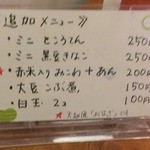 追加メニュー
・ミニ ところてん 250
・ミニ 黒豆きなこ 250
★赤米入りみこわ+あん 200円
・大豆 こぶ煮 150円
・白玉 2コ 100円